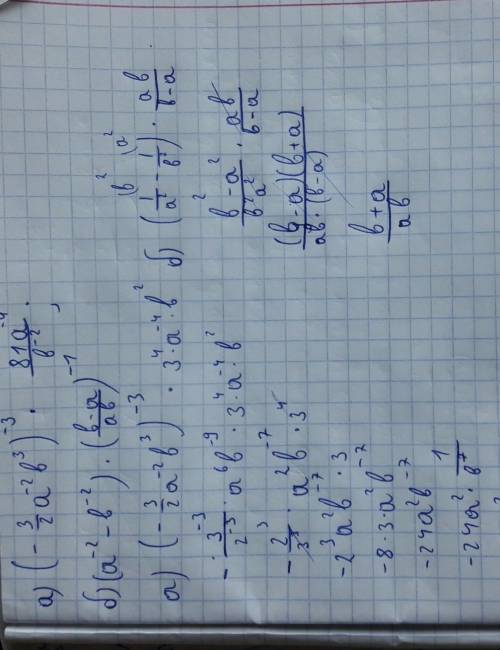 а) (-3/2 a^-2 b^3)^-3 · 81a^-4/b^-2 ;
б) (a^-2 - b^-2) · (b-a/ab)^-1
а) (-3/2 a^-2 b^3)^-3 · 3^4 · a^-4 · b^2
- 3^-3/2^-3 · a^6 b^-9 · 3^4 · a^-4 · b^2
- 2^3/3^3 · a^2 b^-7 · 3^4
-2^3 a^2 b^-7 · 3
-8 · 3 · a^2 b^-7
-24a^2 b^-7
-24a^2 · 1/b^7
б) (1/a^2 - 1/b^2) · ab/b-a
b^2-a^2/b^2a^2 · ab/b-a
(b-a)(b+a)/ab·(b-a)
b+a/ab